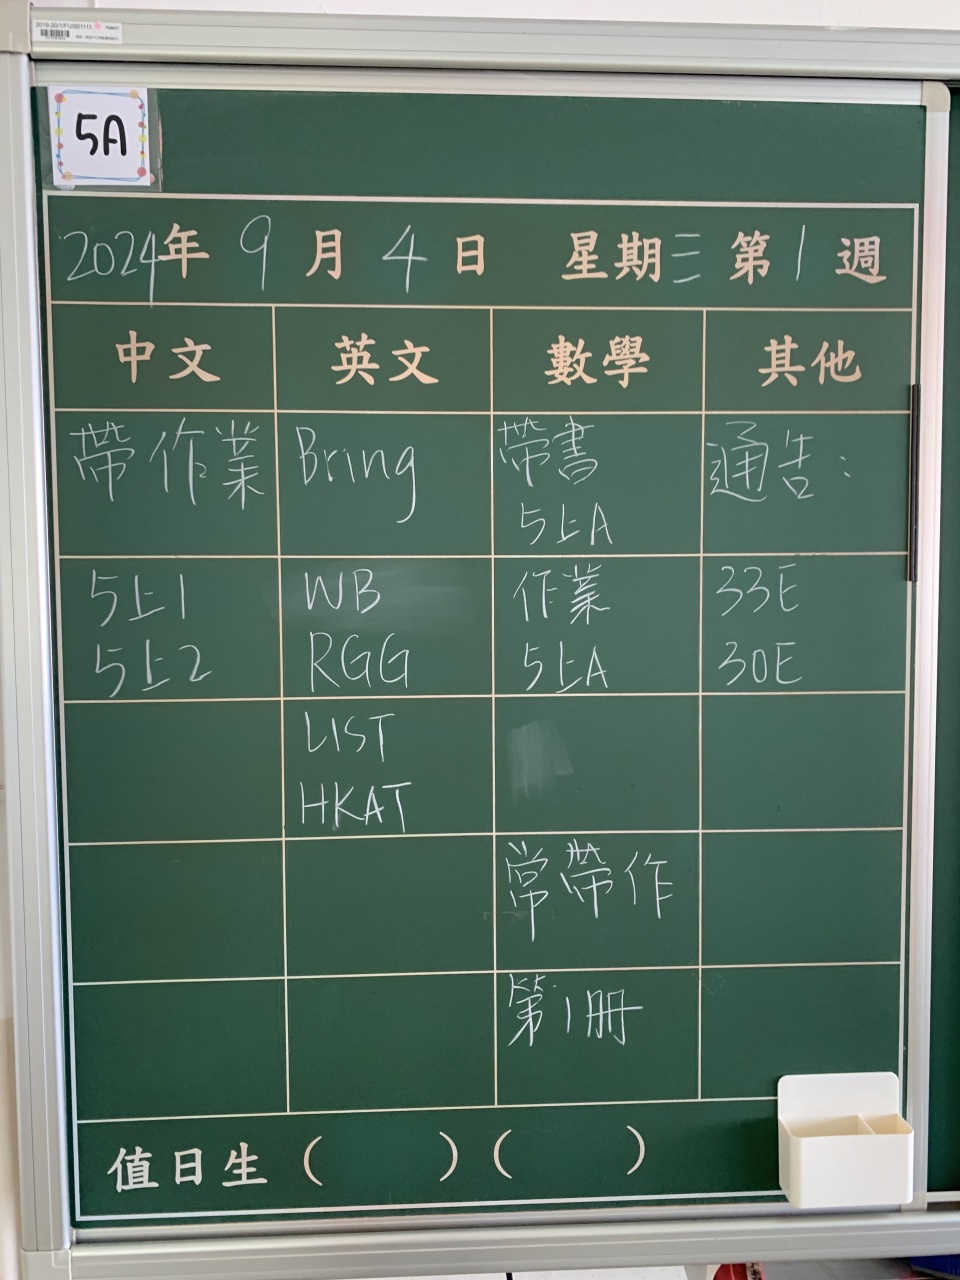 2019-20/1/FU/001111
5A
2024年 9 月 4 日 星期三 第 1 週
中文 英文 數學 其他
帶作業 Bring 帶書 通告：
5上A
5上1 WB 作業 33E
5上2 RGG 5上A 30E
LIST
HKAT
常帶作
第1冊
值日生 ( ) ( )